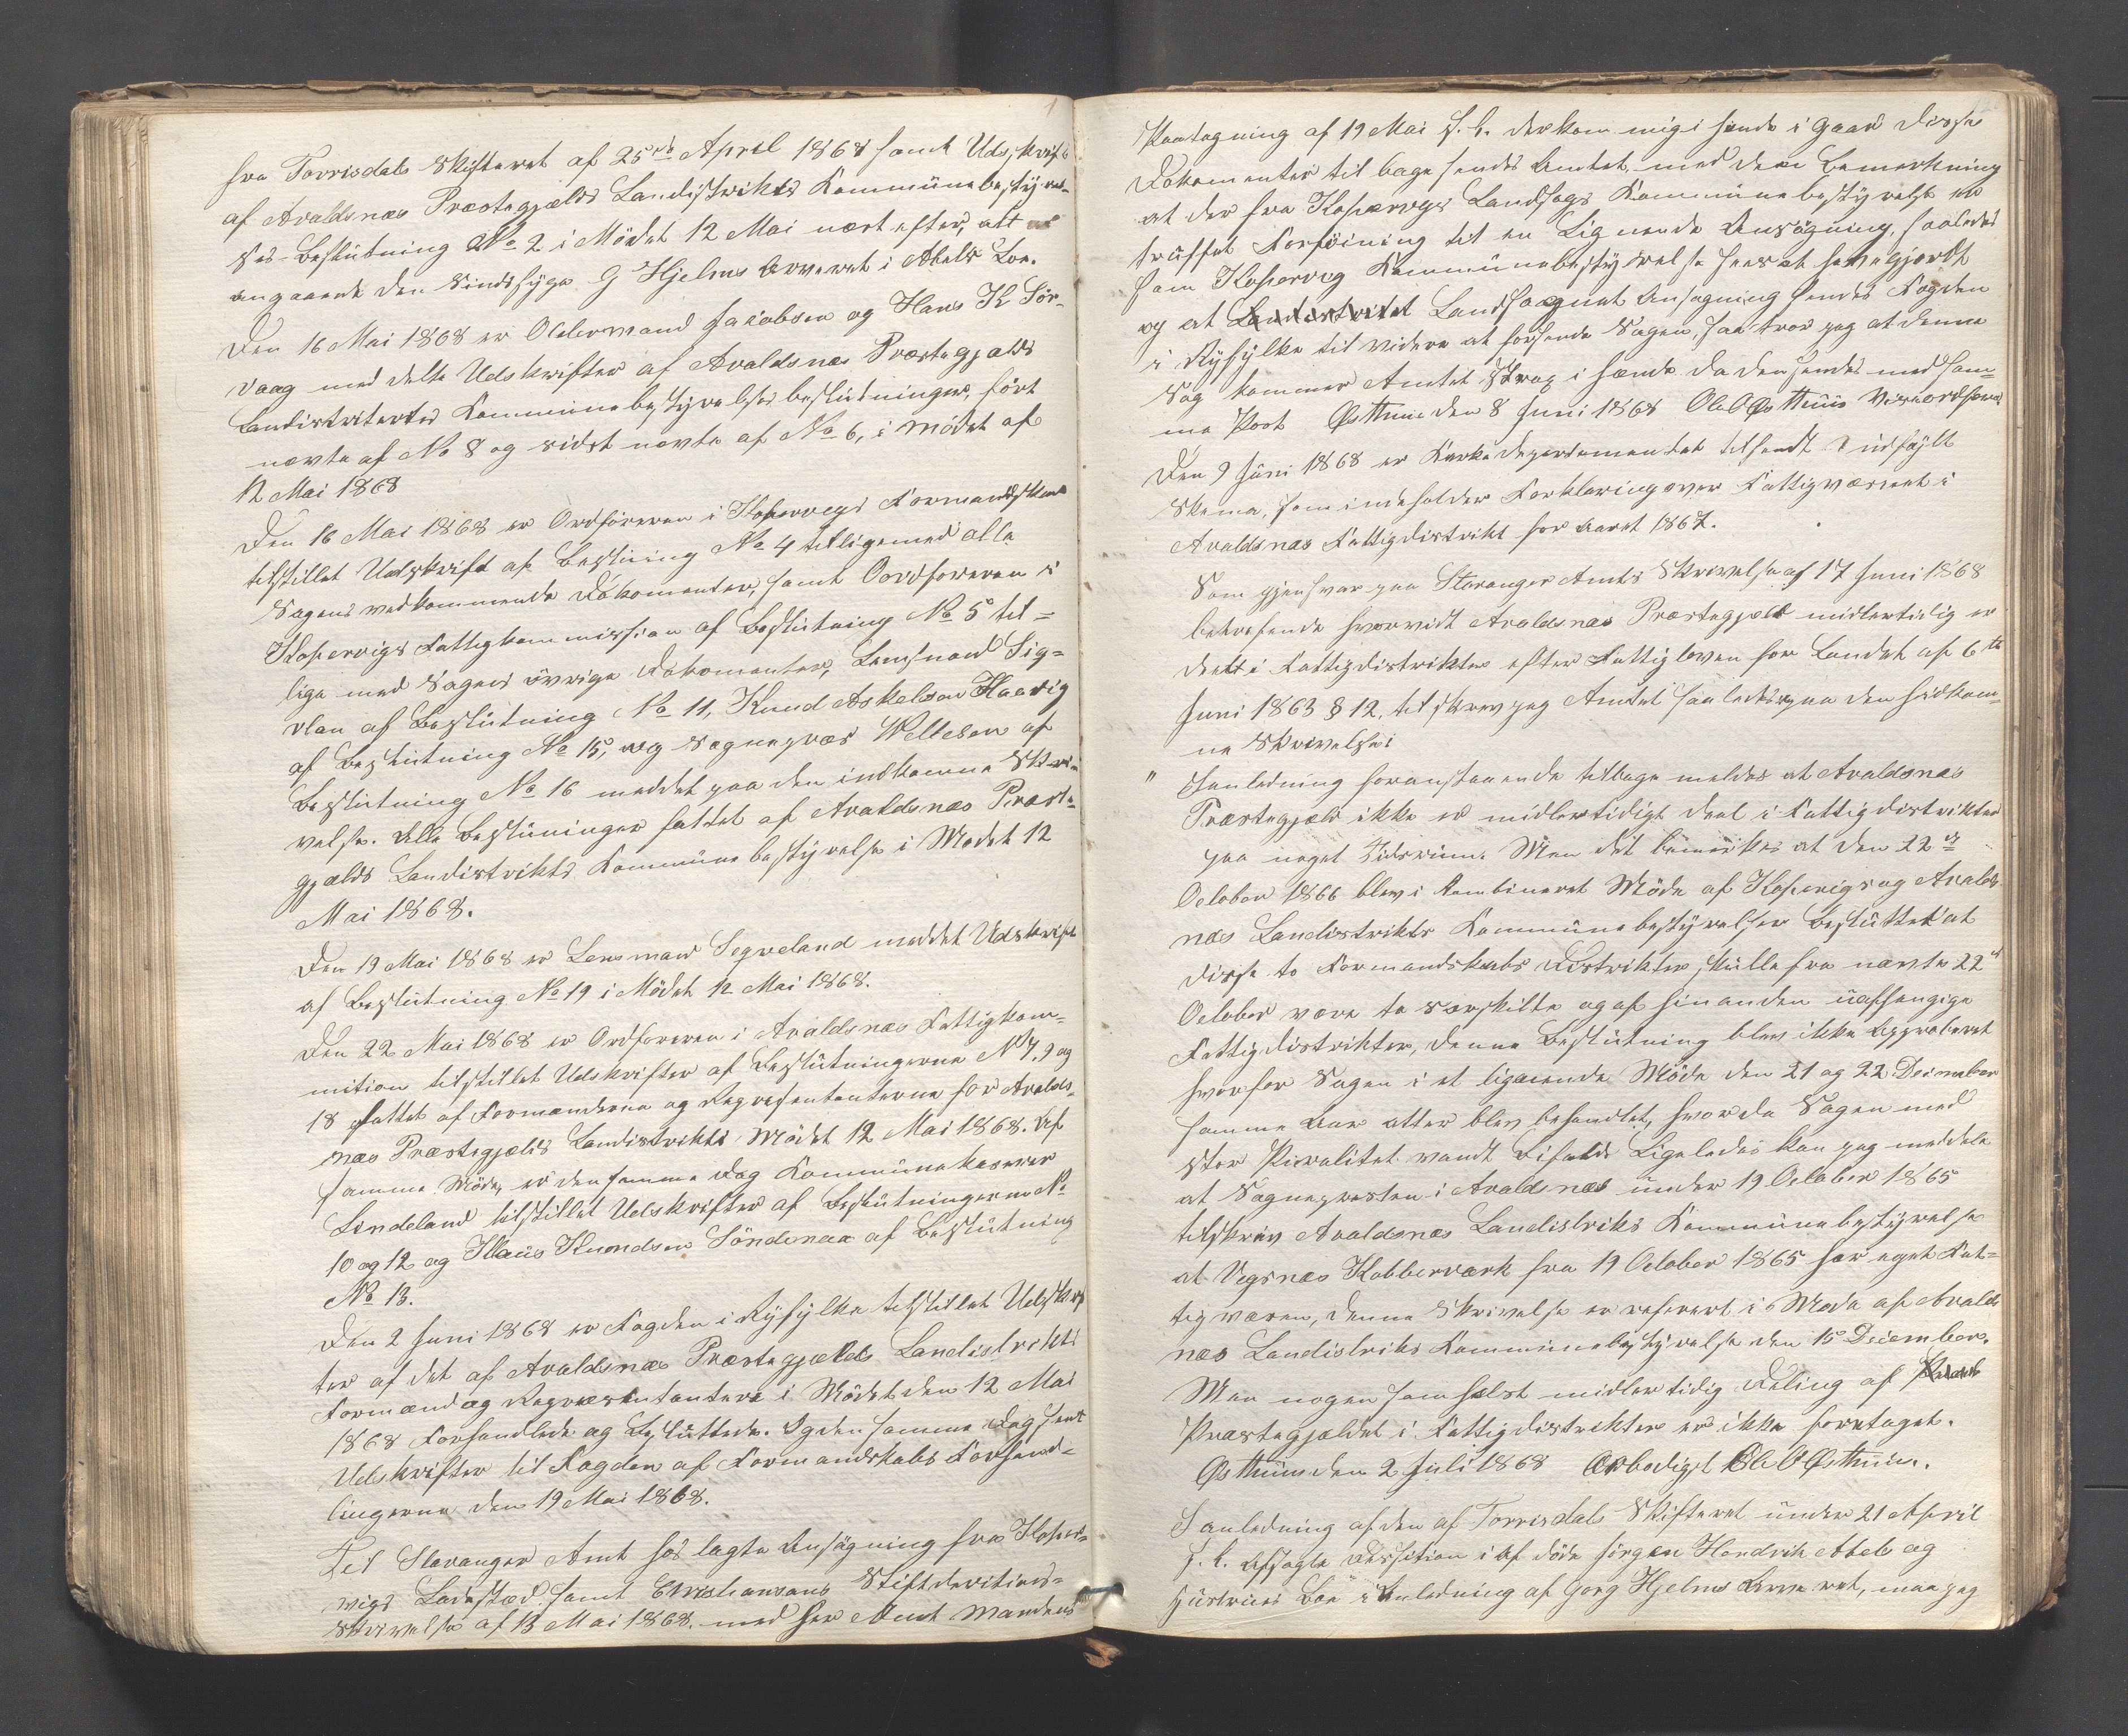 fra Torrisdals Skifteret af 25de April 1868 samt Udskrift
af Avaldsnæs Præstegjælds Landistrikts Kommünebestyrel-
ses-Beslütning No 2 i Mödet 12 Mai næst efter, alt
angaaende den Sindssyge G Hjelms Arveret i Abels Boe.
Den 16 Mai 1868 er Oldermand Jakobsen og Hans K Sör-
vaag meddelte Udskrifter af Avaldsnæs Præstegjælds
Landistrikts Kommünebestyrelses beslütninger, först
nævte af No 8 og sidst nævte af No 6, i Mödet af
12 Mai 1868
Den 16 Mai 1868 er Ordföreren i Kopervigs Formandskab
tilstillet Udskrift af Beslüning No 4 tilligemed alle
Sagens vedkommende Dokomenter, samt Oordföreren i
Kopervigs Fattigkommission af Beslütning No 5 til-
lige med Sagens övrige Dokomenter, Lensmand Sig-
vlan af Beslütning No 11, Knud Askelsen Haavig
af Beslütning No 15, og Sognepræs Welleson af
Beslütning No 16 meddet paa den indkomne Skri-
velse. Alle Beslüninger fattet af Avaldsnæs Præste-
gjælds Landistrikts Kommünebestyrelse i Mödet 12
Mai 1868.
Den 19 Mai 1868 er Lensmand Segveland meddet Udskrift
af Beslütning No 19 i Mödet 12 Mai 1868.
Den 22 Mai 1868 er Ordföreren i Avaldsnæs Fattigkom-
mition tilstillet Udskrifter af Beslütningerne No 7, 9 og
18 fattet af Formændene og Repræsentanterne for Avalds-
næs Præstegjælds Landistrikts Mödet 12 Mai 1868. Af
samme Möde, er den samme Dag Kommünekaserer
Lindeland tilstillet Udskrifter af Beslütningerne No
10 og 12 og Klaüs Knündsen Söndenaa af Beslütning
No 13.
Den 2 Juni 1868 er Fogden i Ryfylke tilstillet Udskrif
ter af det af Avaldsnæs Præstegjælds Landistrikts
Formænd og Repræsentantere i Mödet den 12 Mai
1868 Forhandlede og Beslüttede. Og den samme Dag sent
Udskrifter til Fogden af Formandskabs Forhand-
lingerne den 19 Mai 1868.
Til Stavanger Amt hos lagte Ansögning fra Koper-
vigs Ladested samt Christiansans Stiftderitions-
Skrivelse af 13 Mai 1868. med Her Amt mandens
Paategning af 19 Mai f. A. der kom mig i hende i Gaar Disse
Dokomenter til bage sendes Amtet, med den Bemerkning
at der fra Kopervigs Landsogs Kommünebestyrelse er
truffet Forföining til en Lignende Ansögning, saaledes
som Kopervig Kommünebestyrelse sees at have gjordt
og at Landistriktet Landsognet Ansøgning sendes Fogden
i Ryfylke til videre at forsende Sagen, saa tror jeg at denne
Sag kommer Amtet Strax i hænde da den sendes med sam-
me Post Østhuus den 8 Juni 1868 Ole O Østhuus Viseordförer
Den 9 Juni 1868 er Kirkedepartementet tilsendt 1 üdfÿlt
Skema, som indeholder Forklaring over Fattigvæsenet i
Avaldsnæs Fattigdistrikt for Aaret 1867.
Som gjensvar paa Stavanger Amts Skrivelse af 17 Juni 1868
betræfende hvorvidt Avaldsnæs Præstegjæld midlertidig er
deelt i Fattigdistrikter efter Fattigloven for Landet af 6te
Juni 1863 § 12, tilskrev jeg Amtet saaledes paa den hidkom-
ne Skrivelse:
" I Anledning foranstaaende tilbage meldes at Avaldsnæs
Præstegjæld ikke er midlertidigt deel i Fattigdistrikter
paa noget Tidsrüm. Men det bemerkes at den 22
October 1866 blev i Kombineret Möde af Kopervigs og Avalds
næs Landistrikts Kommünebestyrelser beslüttet at
disse to Formandskabs Distrikter skülle fra nævte 22
October være to særskilte og af hinanden üafhengige
Fattigdistrikter, denne Beslütning blev ikke Approberet
hvorfor Sagen i et ligenende Möde den 21 og 22 Desember
samme Aar atter blev behandlet, hvorda Sagen med
stor Pluralitet vandt Bifald. Ligeledes kan jeg meddele
at Sognepresten i Avaldsnæs under 19 October 1865
tilskrev Avaldsnæs Landistriks Kommünebestyrelse
at Vigsnæs Kobberværk fra 19 October 1865 har eget Fat-
tigvæsen, denne Skrivelse er referert i Möde af Avalds
næs Landistriks Kommünebestyrelse den 15 Desember.
Men nogensomhelst midlertidig Deling af
Præstegjældet i Fattigdistrikter er ikke foretaget.
Østhuus den 2 Juli 1868 Ærbødigst Ole O Østhuus.
I anledning af den af Torrisdals Skifteret under 21 April
f. A. Afsagte Dessition i Af döde Jörgen Hendrik Abels og
Hüstrues Boe i Anledning af Georg Hjelms Arveret, maa jeg